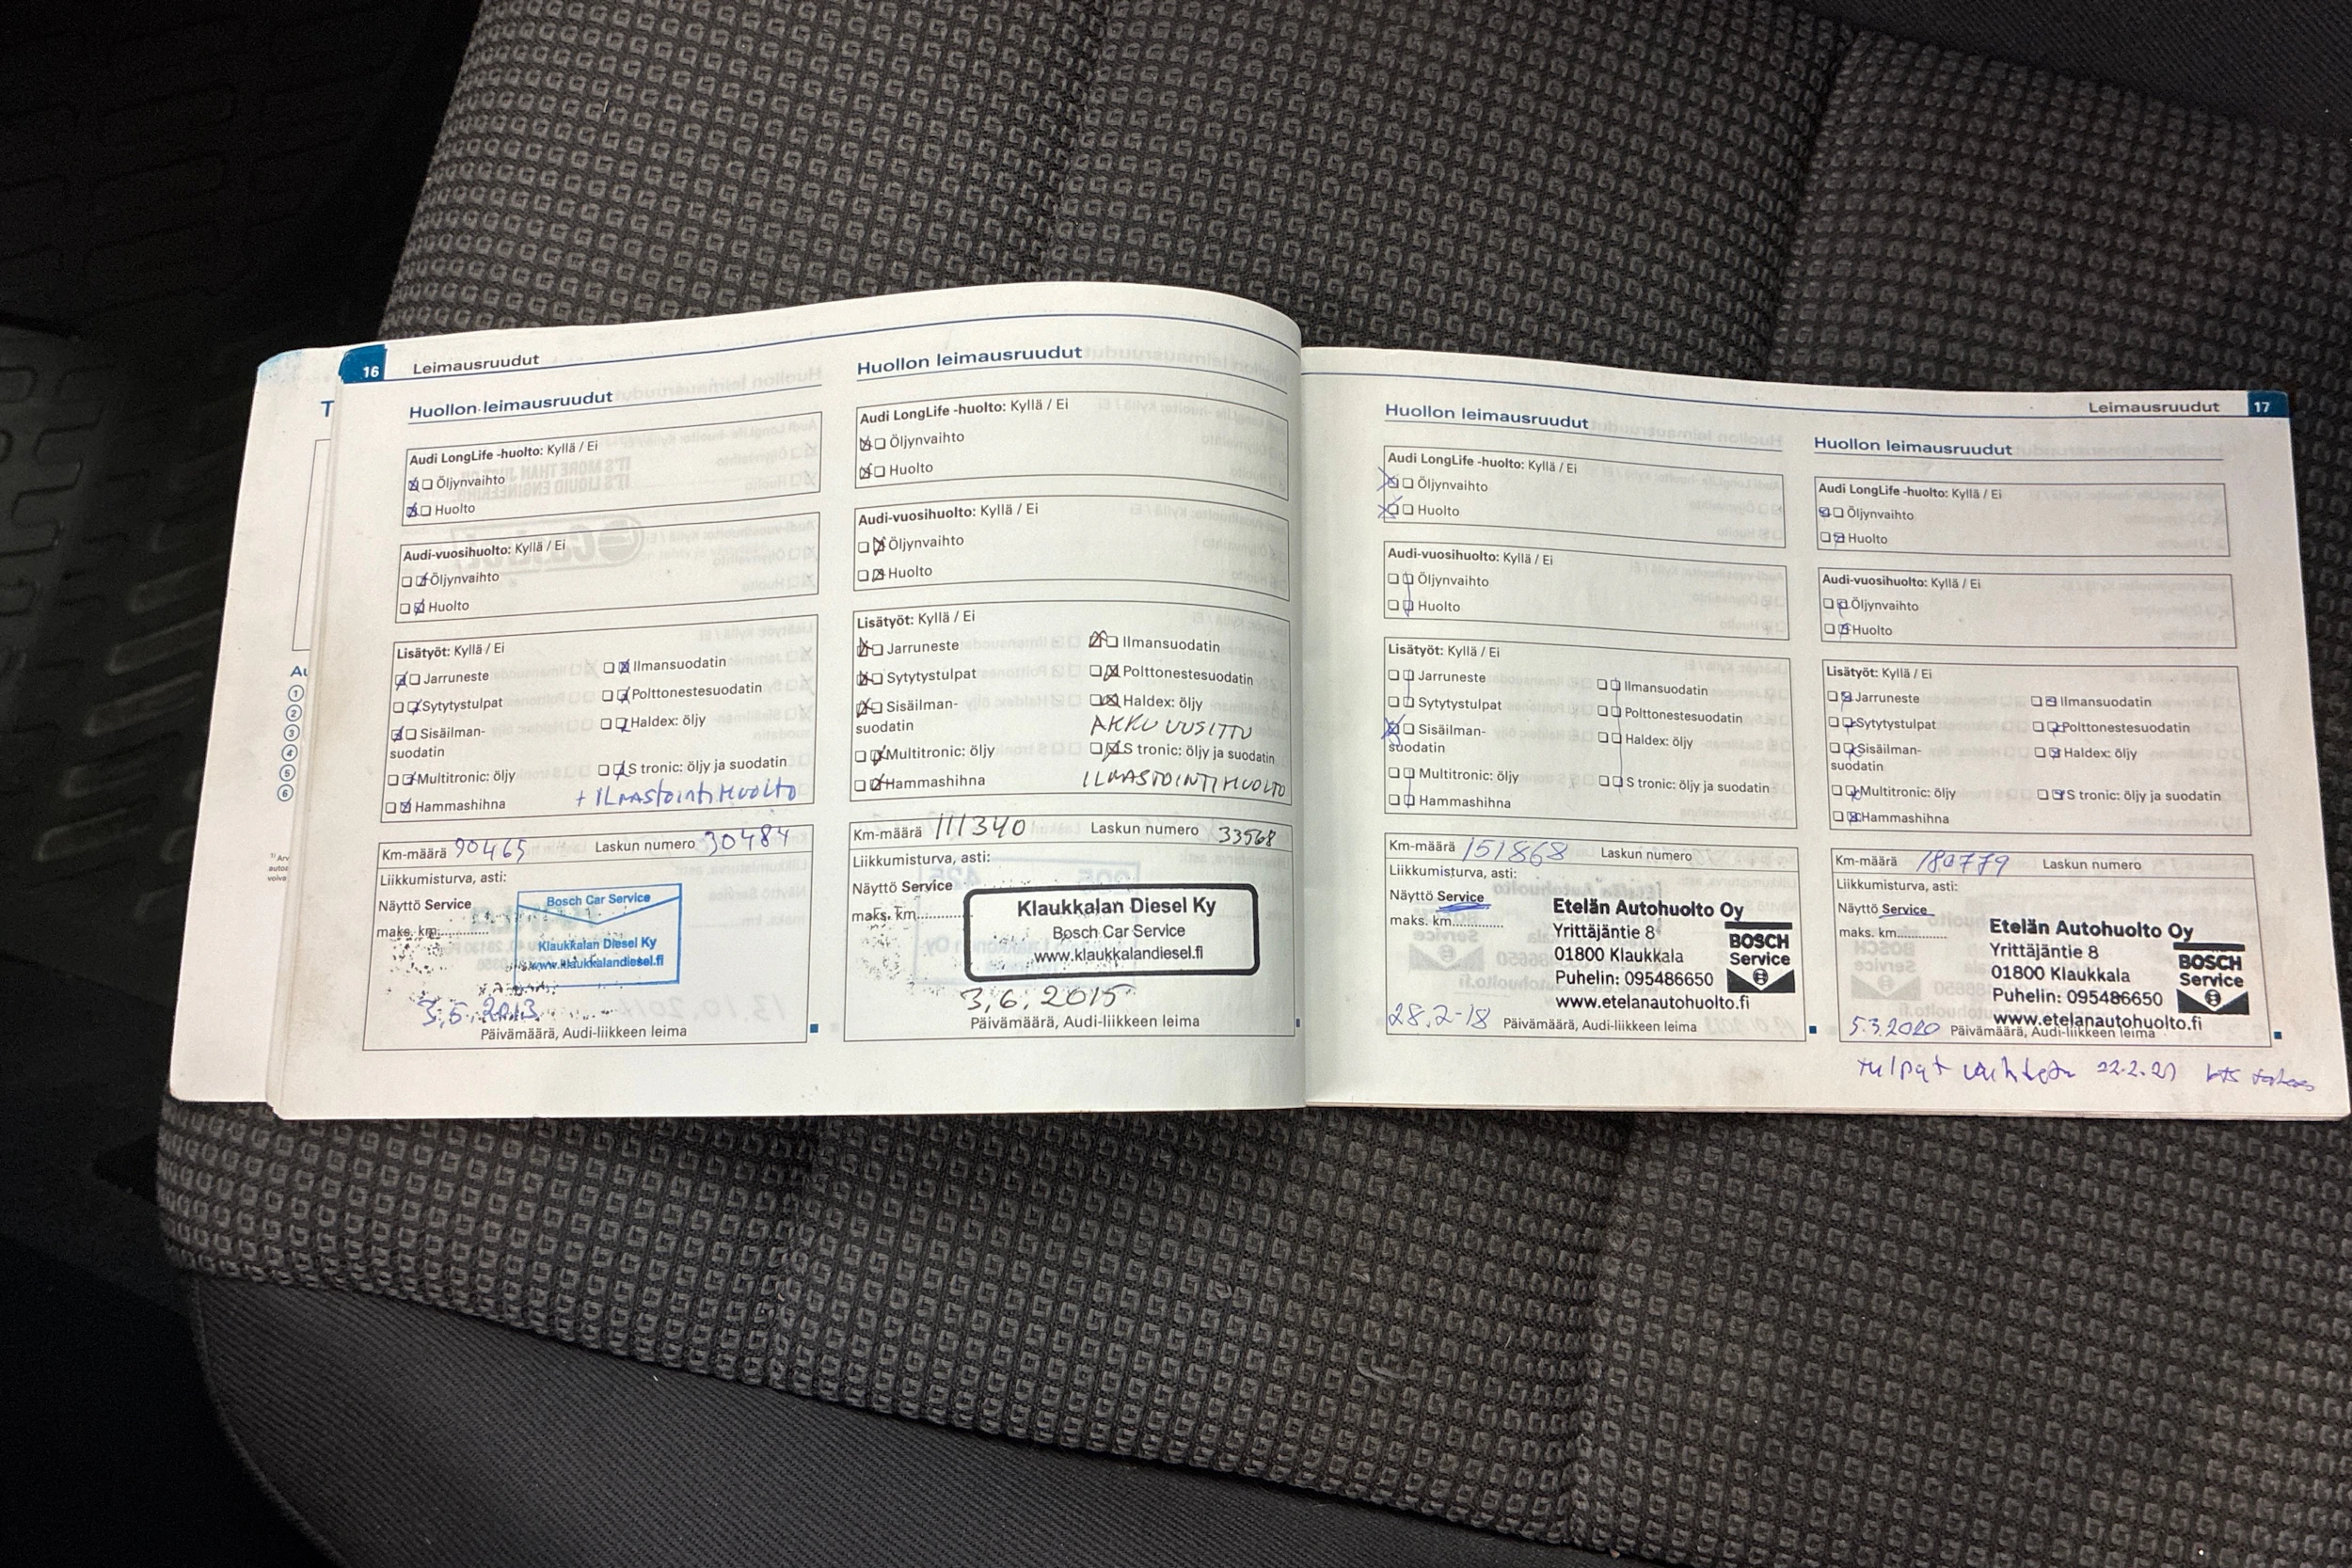 16 Leimausruudut
Huollon leimausruudut
Audi LongLife -huolto: Kyllä / Ei
Öljynvaihto
Huolto
Audi-vuosihuolto: Kyllä / Ei
Öljynvaihto
Huolto
Lisätyöt: Kyllä / Ei
Jarruneste
Ilmansuodatin
Sytytystulpat
Polttonestesuodatin
Sisäilman-
suodatin
Haldex: öljy
Multitronic: öljy
S tronic: öljy ja suodatin
Hammashihna
+ ILMASTOINTIHUOLTO
Km-määrä 90465 Laskun numero 30484
Liikkumisturva, asti:
Näyttö Service
maks. km
Bosch Car Service
Klaukkalan Diesel Ky
www.klaukkalandiesel.fi
3.6.2013
Päivämäärä, Audi-liikkeen leima
Huollon leimausruudut
Audi LongLife -huolto: Kyllä / Ei
Öljynvaihto
Huolto
Audi-vuosihuolto: Kyllä / Ei
Öljynvaihto
Huolto
Lisätyöt: Kyllä / Ei
Jarruneste
Ilmansuodatin
Sytytystulpat
Polttonestesuodatin
Sisäilman-
suodatin
Haldex: öljy
AKKU UUSITTU
Multitronic: öljy
S tronic: öljy ja suodatin
Hammashihna
ILMASTOINTIHUOLTO
Km-määrä 111340 Laskun numero 33568
Liikkumisturva, asti:
Näyttö Service
maks. km
Klaukkalan Diesel Ky
Bosch Car Service
www.klaukkalandiesel.fi
3.6.2015
Päivämäärä, Audi-liikkeen leima
Leimausruudut 17
Huollon leimausruudut
Audi LongLife -huolto: Kyllä / Ei
Öljynvaihto
Huolto
Audi-vuosihuolto: Kyllä / Ei
Öljynvaihto
Huolto
Lisätyöt: Kyllä / Ei
Jarruneste
Ilmansuodatin
Sytytystulpat
Polttonestesuodatin
Sisäilman-
suodatin
Haldex: öljy
Multitronic: öljy
S tronic: öljy ja suodatin
Hammashihna
Km-määrä 151868 Laskun numero
Liikkumisturva, asti:
Näyttö Service
maks. km
Etelän Autohuolto Oy
Yrittäjäntie 8
01800 Klaukkala
Puhelin: 095486650
www.etelanautohuolto.fi
BOSCH
Service
28.2-18 Päivämäärä, Audi-liikkeen leima
Huollon leimausruudut
Audi LongLife -huolto: Kyllä / Ei
Öljynvaihto
Huolto
Audi-vuosihuolto: Kyllä / Ei
Öljynvaihto
Huolto
Lisätyöt: Kyllä / Ei
Jarruneste
Ilmansuodatin
Sytytystulpat
Polttonestesuodatin
Sisäilman-
suodatin
Haldex: öljy
Multitronic: öljy
S tronic: öljy ja suodatin
Hammashihna
Km-määrä 180779 Laskun numero
Liikkumisturva, asti:
Näyttö Service
maks. km
Etelän Autohuolto Oy
Yrittäjäntie 8
01800 Klaukkala
Puhelin: 095486650
www.etelanautohuolto.fi
BOSCH
Service
5.3.2020 Päivämäärä, Audi-liikkeen leima
tulpat